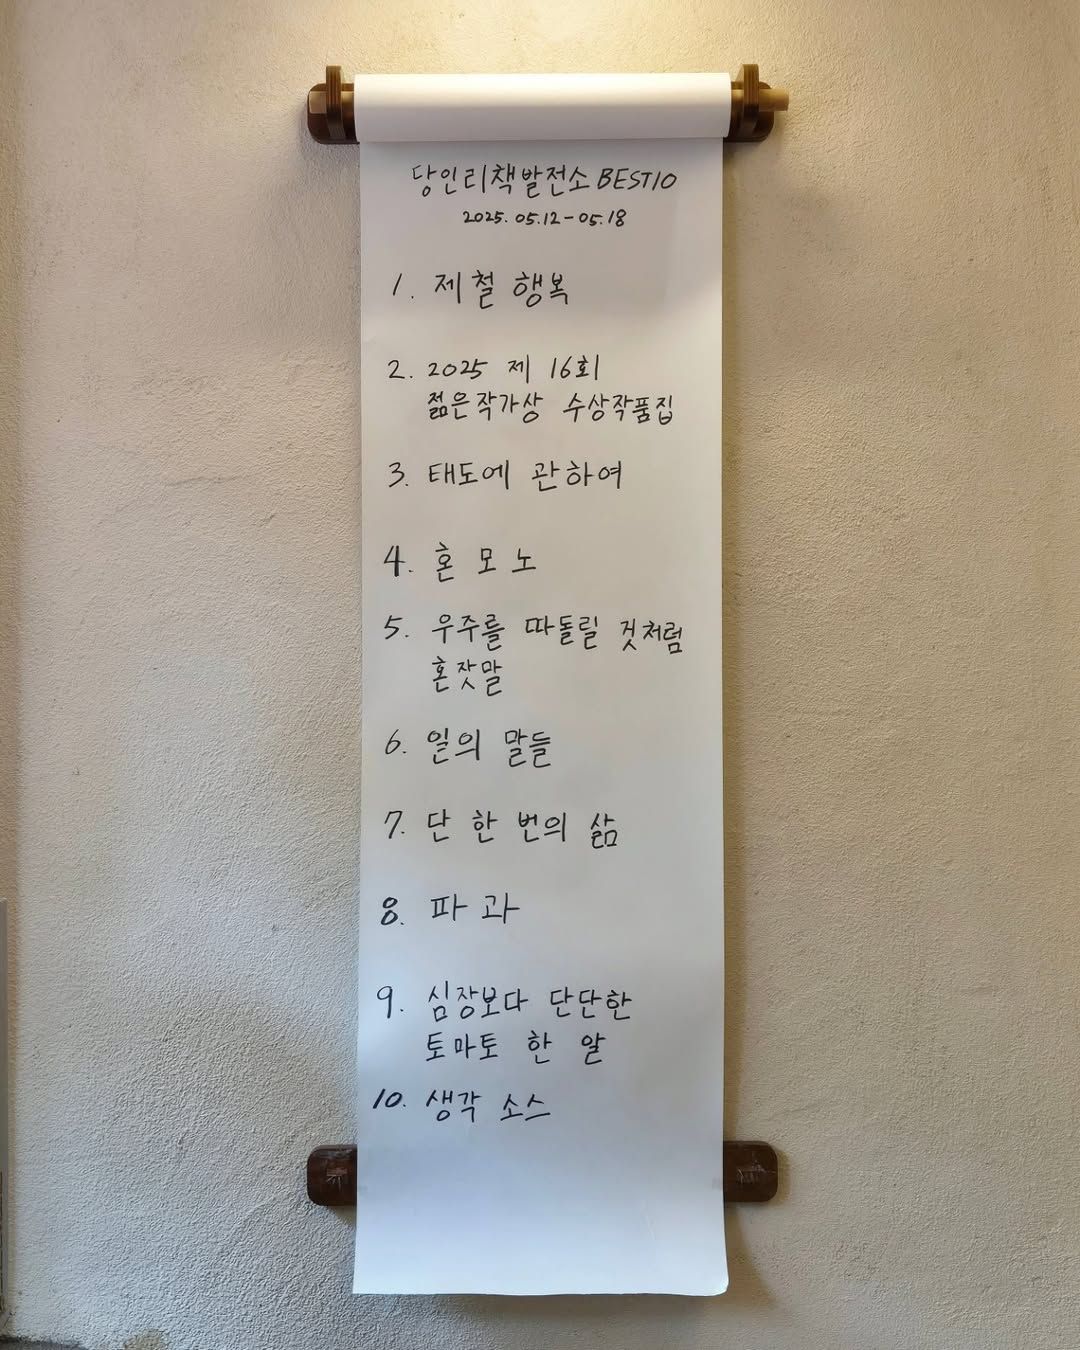 당인리책발전소 BEST10
2025. 05.12 - 05.18
1. 제철 행복
2. 2025 제 16회
젊은작가상 수상작품집
3. 태도에 관하여
4. 혼모노
5. 우주를 따돌릴 것처럼
혼잣말
6. 일의 말들
7. 단 한 번의 삶
8. 파과
9. 심장보다 단단한
토마토 한 알
10. 생각 소스